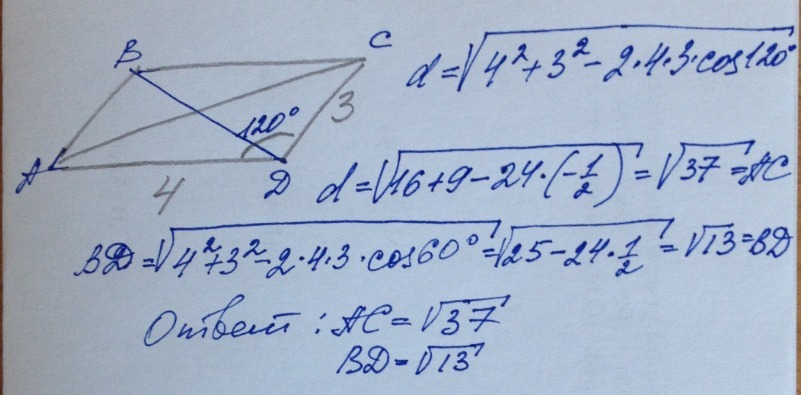 B
C
120°
3
A
4
D
d=√(4²+3²-2·4·3·cos120°)
d=√(16+9-24·(-1/2))=√37=AC
BD=√(4²+3²-2·4·3·cos60°)=√(25-24·1/2)=√13=BD
Ответ: AC=√37
BD=√13